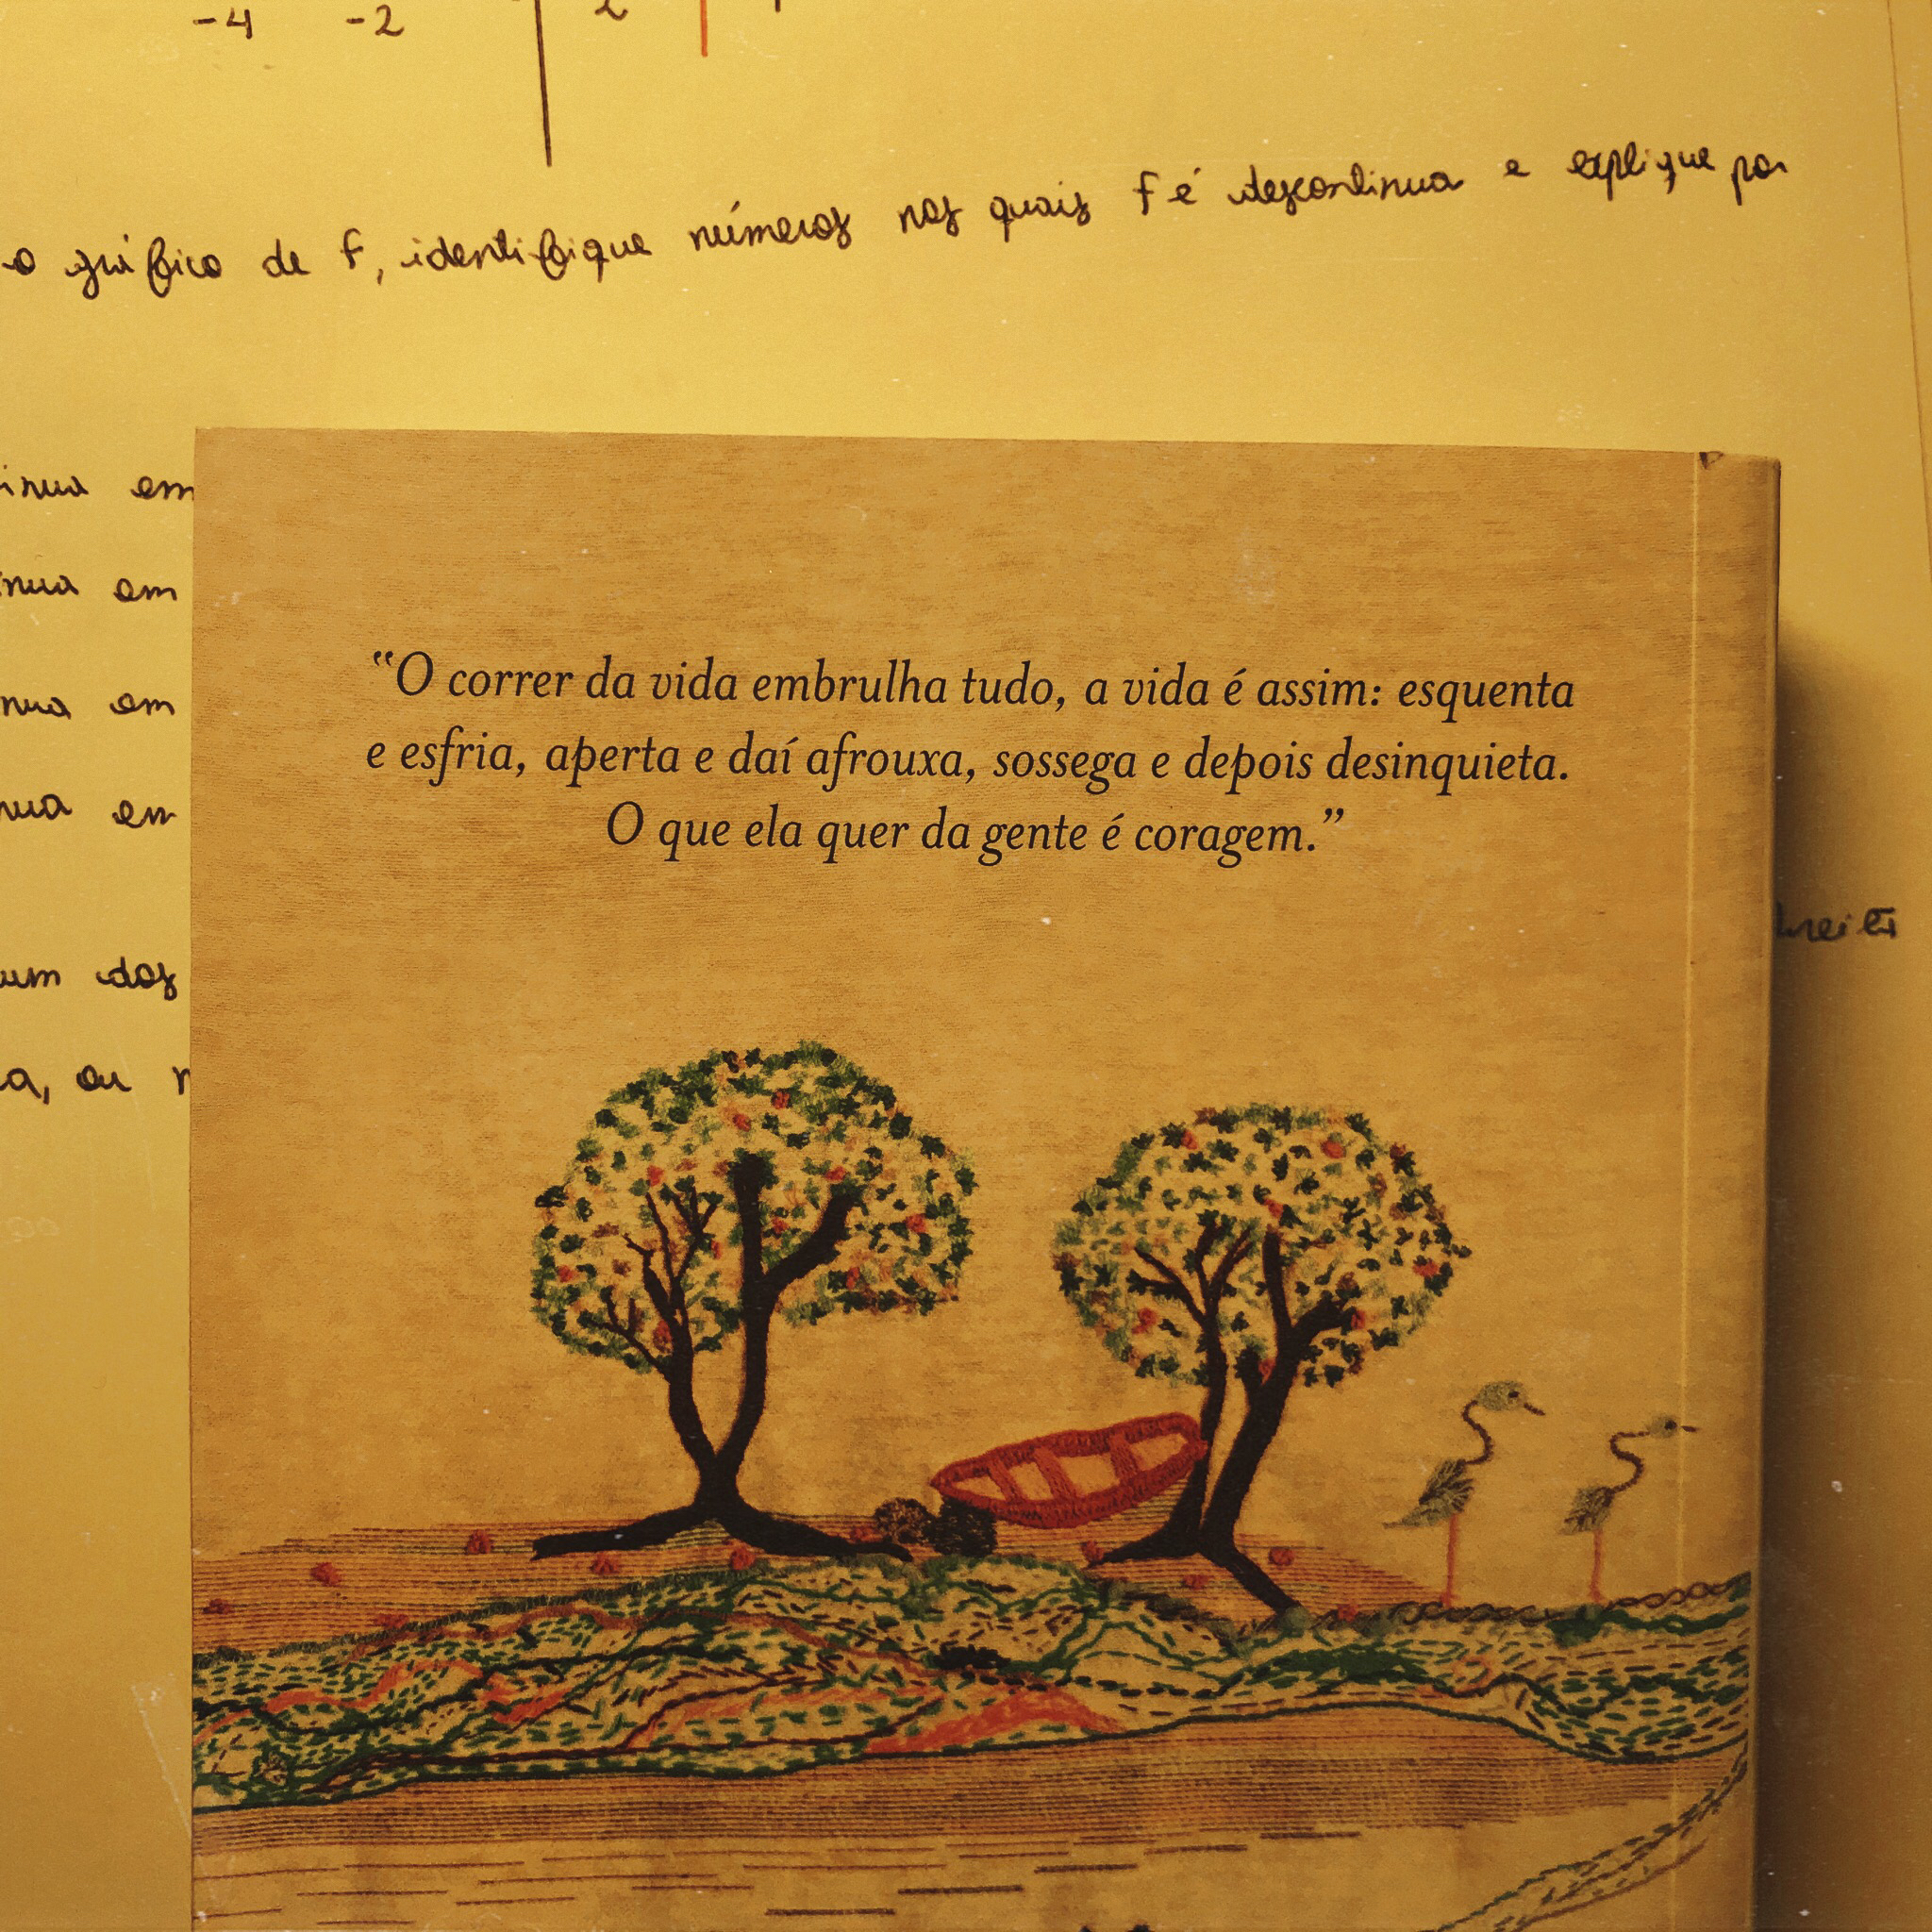 -4 -2 2
o gráfico de f, identifique números nos quais f é descontínua e explique por
inua em
inua em
nua em
nua em
um dos
a, ou
“O correr da vida embrulha tudo, a vida é assim: esquenta
e esfria, aperta e daí afrouxa, sossega e depois desinquieta.
O que ela quer da gente é coragem.”